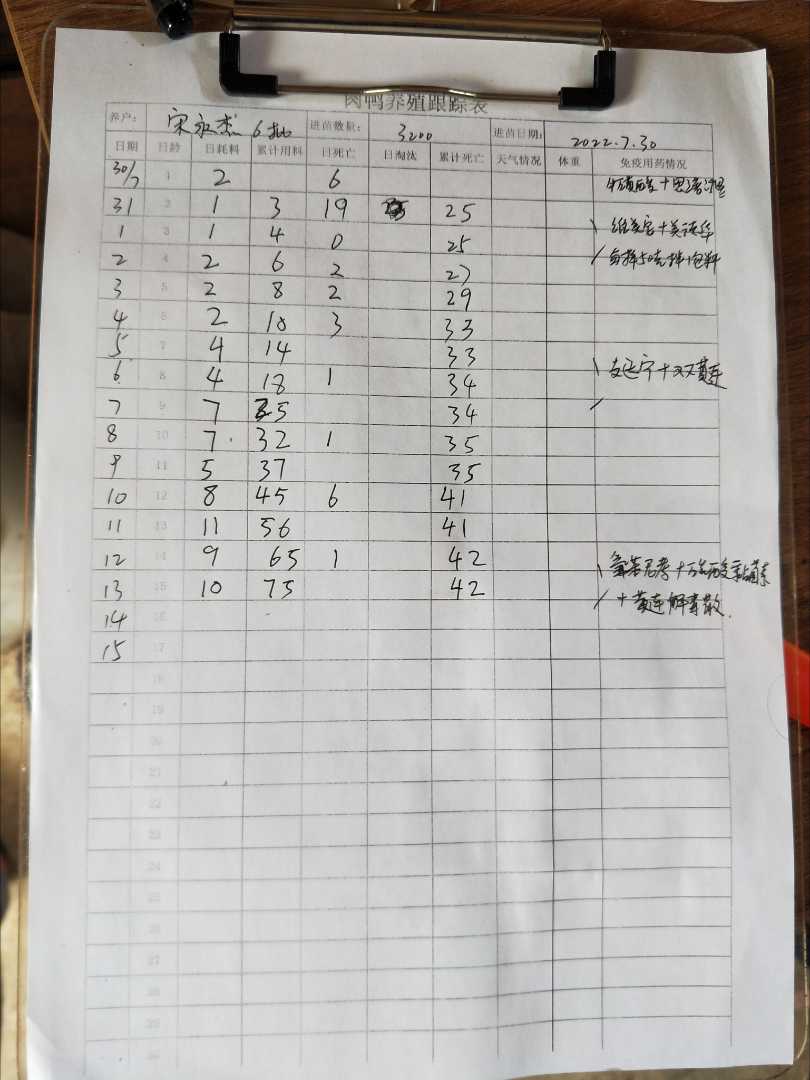 肉鸭养殖跟踪表
养户: 宋永杰 6批 进苗数量: 3200 进苗日期: 2022.7.30
日期 日龄 日耗料 累计用料 日死亡 日淘汰 累计死亡 天气情况 体重 免疫用药情况
30/7 1 2 6
31 2 1 3 19 25
1 3 1 4 0 25
2 4 2 6 2 27
3 5 2 8 2 29
4 6 2 10 3 33
5 7 4 14 33
6 8 4 18 1 34
7 9 7 25 34
8 10 7 32 1 35
9 11 5 37 35
10 12 8 45 6 41
11 13 11 56 41
12 14 9 65 1 42
13 15 10 75 42 + 黄连解毒散.
14 16
15 17
18
19
20
21
22
23
24
25
26
27
28
29
30